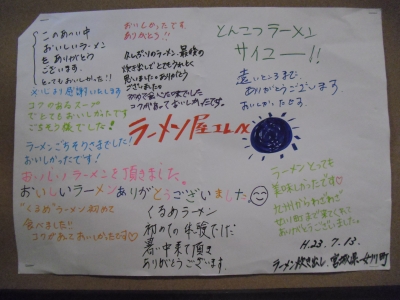 このあい中
おいしいラーメン
をありがとう
ございます。
とてもおいしかった!!
心より感謝いたします
コクがあるスープ
でとてもおいしかったです
ごちそう様でした!
ラーメンごちそうさまでした!
おいしかったです!
おいしいラーメンを頂きました。
おいしいラーメンありがとうございました。
"くるめ"ラーメン初めて
食べました!!
コクがあっておいしかったです♡
おいしかったです
ありがとう!!
久しぶりのラーメン、最後の
炊き出しでとてもうれしく
思いました。ありがとう
ございました。
コクがあっておいしかったです。
ラーメン屋
くるめラーメン
初めての体験でした
暑い中来て頂き
ありがとうございます。
とんこつラーメン
サイコー!!
遠いところまで、
ありがとうございます
おいしかったです。
ラーメンとっても
美味しかったです♡
九州からわざわざ
女川町まで来てくれて
ありがとうございました。
H.23.7.13.
ラーメン炊出し 宮城県女川町